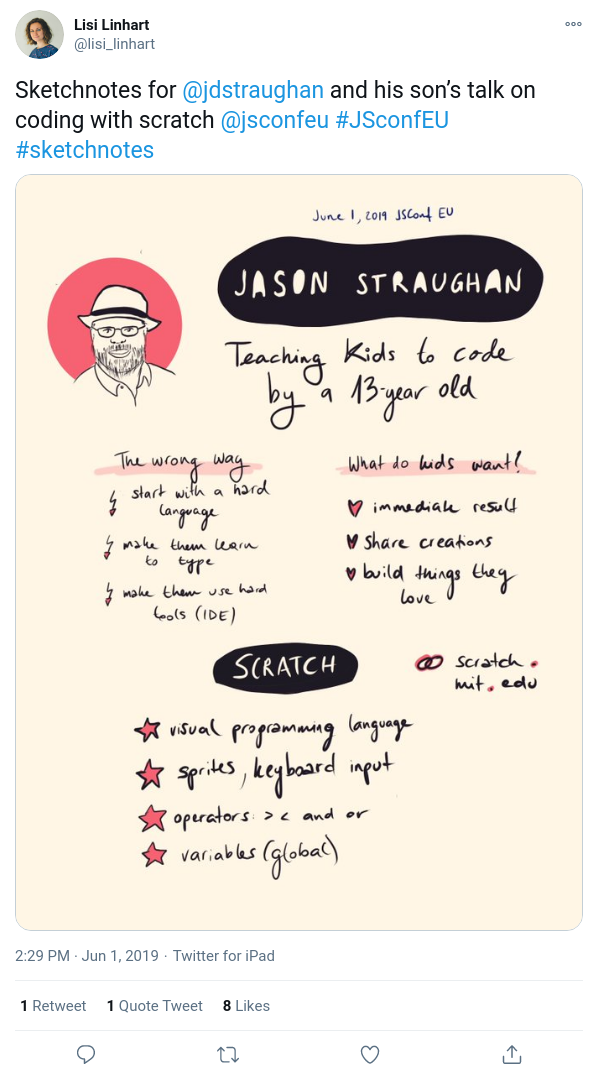 Lisi Linhart
@lisi_linhart
Sketchnotes for @jdstraughan and his son’s talk on
coding with scratch @jsconfeu #JSconfEU
#sketchnotes
June 1, 2019 JSConf EU
JASON STRAUGHAN
Teaching Kids to code
by a 13-year old
The wrong way
start with a hard
language
make them learn
to type
make them use hard
tools (IDE)
What do kids want?
immediate result
share creations
build things they
love
SCRATCH
scratch.
mit.edu
visual programming language
sprites, keyboard input
operators: > < and or
variables (global)
2:29 PM · Jun 1, 2019 · Twitter for iPad
1 Retweet 1 Quote Tweet 8 Likes